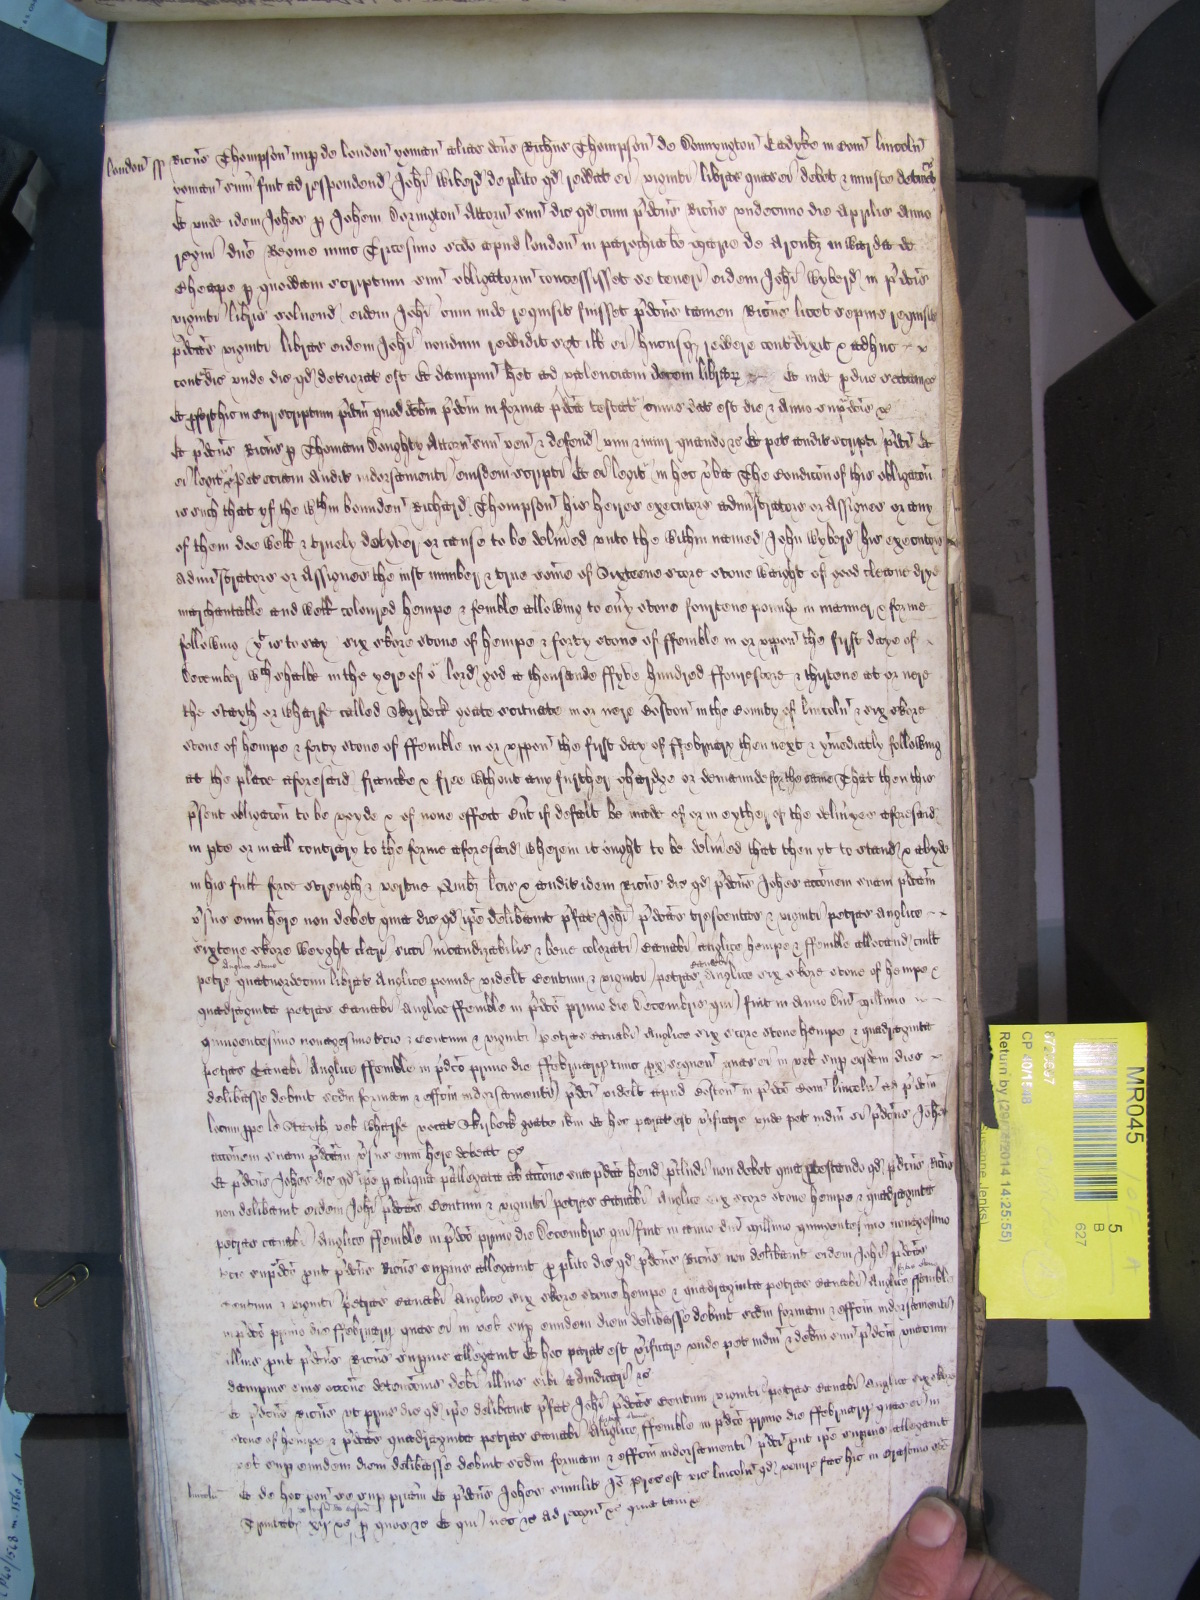 London ss Ricus Thompson nup de London yoman alias dcus Richus Thompson de Donnyngton Eadyke in Com Lincoln
yoman sum fuit ad respondend Johi Wiberd de plito qd reddat ei viginti libras quas ei debet & iniuste detinet
Et unde idem Johes p Johem Dorington Attorn suu dic qd cum pdcus Ricus undecimo die Aprilis Anno
regni dne Regine nunc Tricesimo scdo apud London in parochia be Marie de Arcubz in Warda de
Cheape p quoddam scriptum suu obligatorium concessisset se teneri eidem Johi Wyberd in pdcis
viginti libris solvend eidem Johi cum inde requisit fuisset pdcus tamen Ricus licet sepius requisit
pdcas viginti libras eidem Johi nondum reddidit set ill ei hucusqz reddere contdixit & adhuc
contdic unde dic qd deteriorat est Et dampnu het ad valenciam decem librar Et inde pduc sectam &c
Et pfert hic in Cur scriptum pdcm quod debm pdcm in forma pdca testat cuius dat est die & Anno supdcis &c
Et pdcus Ricus p Thomam Doughty Attorn suu ven & defend vim & iniur quando &c Et pet audit scripti pdci Et
ei legit &c Pet eciam audit indorsamenti eiusdem scripti Et ei legit in hec vba The Condicon of this obligacon
is such that yf the wthin bounden Richard Thompson his heires executors administrators or Assignes or any
of them doe well & truely delyver or cause to be delived unto the within named John Wyberd his executors
administrators or Assignes the iust number & true some of Sixteene score stone waight of good cleane drye
marchantable and well coloured hempe & femble allowing to evy stone fourtene pound in manner & forme
following yt is to say six skore stone of hempe & forty stone of ffemble in or uppon the first daye of
December wch shalbe in the yere of or lord god a thousande ffyve hundred ffourescore & thirtene at or nere
the stayth or wharfe called Skyrbeck goate scituate in or nere Boston in the County of Lincoln & six skore
stone of hempe & forty stone of ffemble in or uppon the first day of ffebruary then next & ymediatly following
at the place aforesaid francke & free without any further chardge or demaunde for the same That then this
psent obligacon to be voyde & of none effect But if default be made of or in eyther of the deliveryes aforesaid
in pte or in all contrary to the forme aforesaid wherein it ought to be delived that then yt to stand & abyde
in his full force strength & vertue Quibz lcis & audit idem Ricus dic qd pdcus Johes accionem suam pdcam
vsus eum here non debet quia dic qd ipe delibavit pfat Johi pdcas trescentas & viginti petras Anglice
sixtene skore weyght clari sicci mcandizabilis & bene colorati Canabi anglice hempe & ffemble allocand cuilt
petre anglice stone quatuordecim libras Anglice pound videlt Centum & viginti petras Canabi Anglice six skore stone of hempe &
quadraginta petras Canabi Anglice ffemble in pdco primo die Decembris qui fuit in Anno Dni millimo
quingentesimo nonagesimo tcio & Centum & viginti petras Canabi Anglice six score stone hempe & quadraginta
petras Canabi Anglice ffemble in pdco primo die ffebruarii tunc px sequen quas ei in vel sup eosdem dies
delibasse debuit scdm formam & effcm indorsamenti pdci videlt apud Boston in pdco Com Lincoln ad pdcm
locum ppe le Stayth vel Wharfe vocat Skirbeck goate ibm Et hoc parat est vificare unde pet iudm si pdcus Johes
accionem suam pdcam vsus eum here debeat &c
Et pdcus Johes dic qd ipe p aliqua pallegata ab accione sua pdca hend pcludi non debet quia ptestando qd pdcus Ricus
non delibavit eidem Johi pdcas Centum & viginti petras Canabi Anglice six score stone hempe & quadraginta
petras canabi Anglice ffemble in pdco primo die Decembris qui fuit in anno dni millimo quingentesimo nonagesimo
tcio supdco put pdcus Ricus supius allegavit p plito dic qd pdcus Ricus non delibavit eidem Johi pdcas
Centum & viginti petras Canabi Anglice six skore stone hempe & quadraginta petras Canabi Anglice ffemble
in pdco primo die ffebruarii quas ei in vel sup eundem diem delibasse debuit scdm formam & effcm indorsamenti
illius put pdcus Ricus supius allegavit Et hoc parat est vificare unde pet iudm & debm suu pdcm unacum
dampnis suis occone detencionis debi illius sibi adiudicari &c
Et pdcus Ricus ut prius dic qd ipe delibavit pfat Johi pdcas Centum viginti petras Canabi Anglice six skore
stone of hempe & pdcas quadraginta petras Canabi Anglice ffemble in pdco primo die ffebruarii quas ei in
vel sup eundem diem delibasse debuit scdm formam & effcm indorsamenti pdci put ipe supius allegavit
Lincoln Et de hoc pon se sup priam Et pdcus Johes similit Io Prec est vic Lincoln qd venire fac hic in Crastino sce
Trinitatis xij &c p quos &c Et qui nec &c ad recogn &c quia tam &c
MR045
5
B
627
CP 40/1548
Return by (29/ /2014 14:25:55)